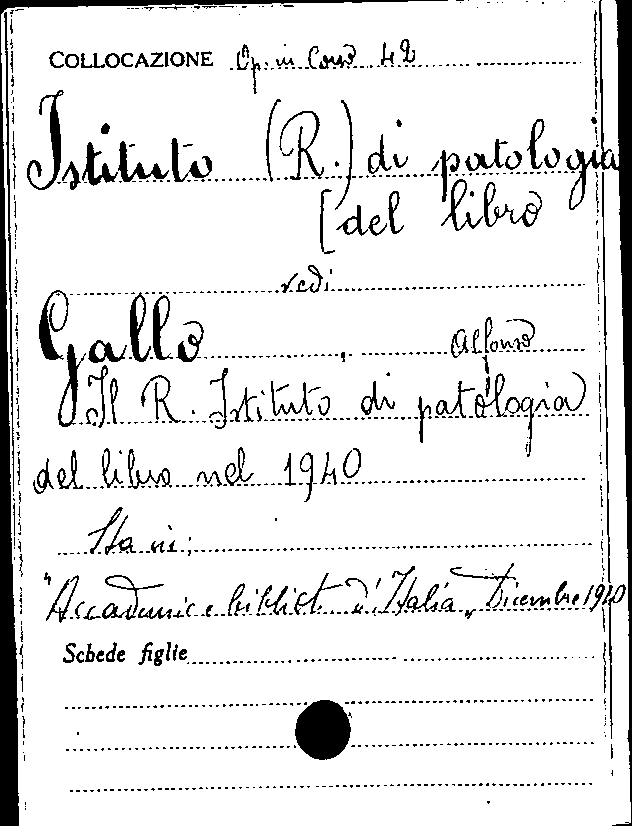 COLLOCAZIONE Op. in Corso 42
Istituto (R.) di patologia
[del libro
vedi
Gallo, Alfonso
Il R. Istituto di patologia
del libro nel 1940
Sta in:
"Accademie e bibliot. d'Italia" Dicembre 1940
Schede figlie